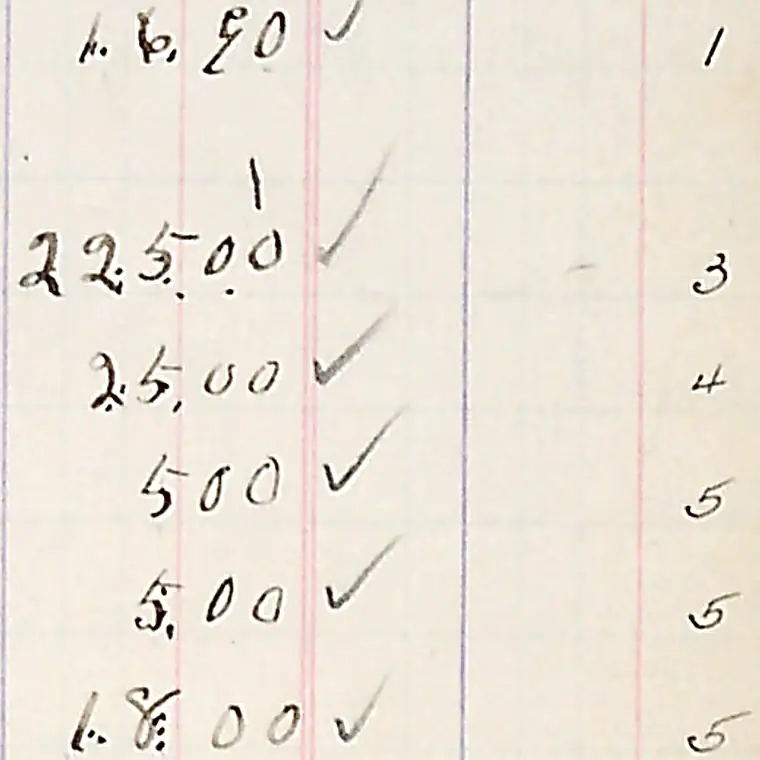 16.50 ✓ 1
225.00 ✓ 3
25.00 ✓ 4
500 ✓ 5
5.00 ✓ 5
18.00 ✓ 5